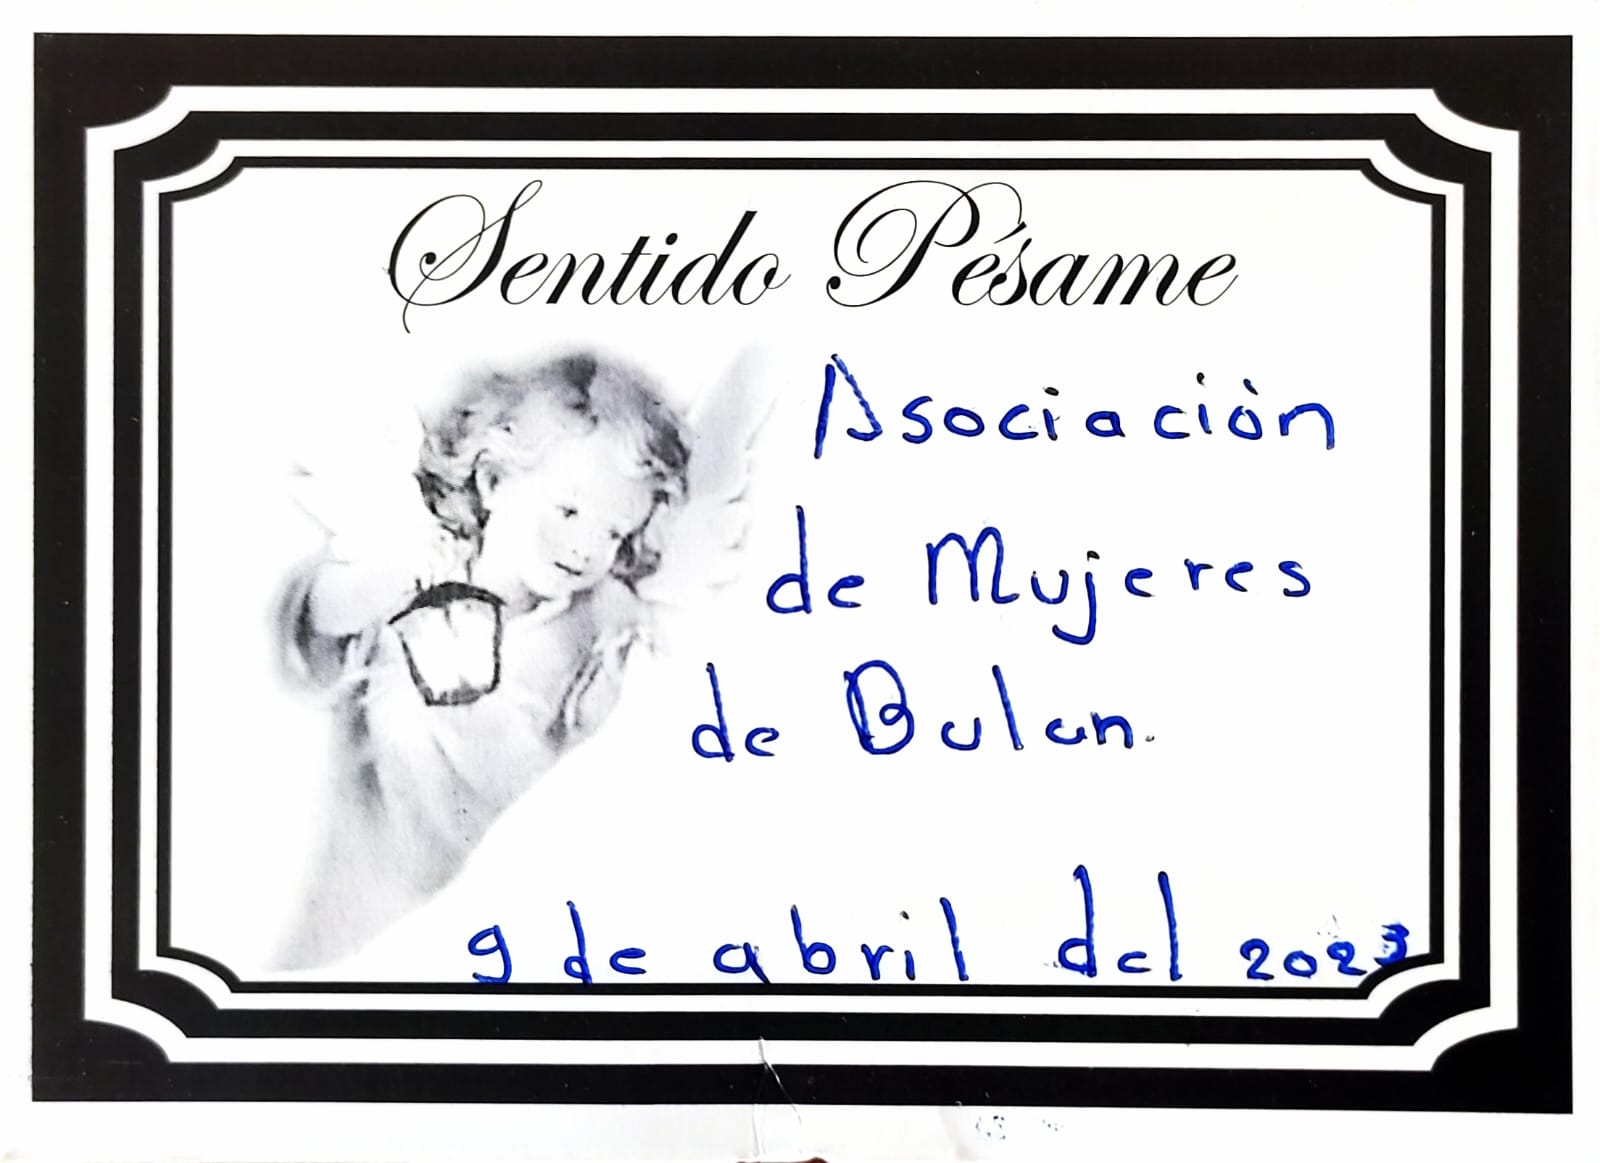 Sentido Pésame
Asociación
de Mujeres
de Bulan.
9 de abril del 2023